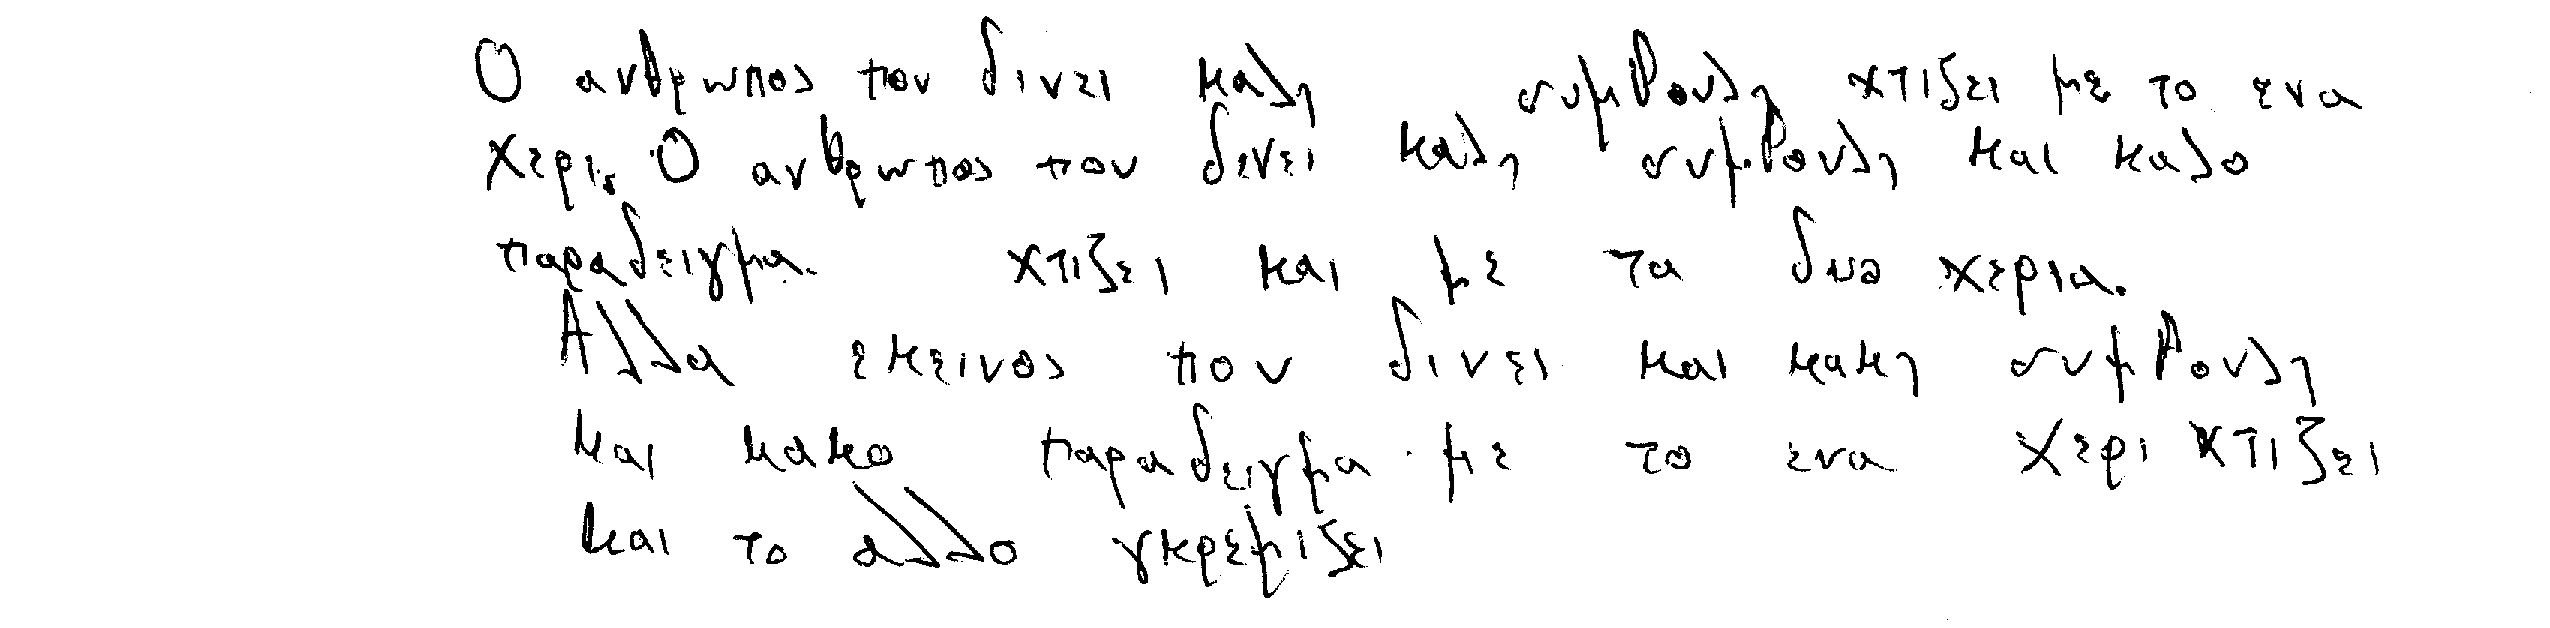 Ο ανθρωπος που δινει καλη συμβουλη χτιζει με το ενα
χερι. Ο ανθρωπος που δινει καλη συμβουλη και καλο
παραδειγμα χτιζει και με τα δυο χερια.
Αλλα εκεινος που δινει και κακη συμβουλη
και κακο παραδειγμα με το ενα χερι χτιζει
και το αλλο γκρεμιζει